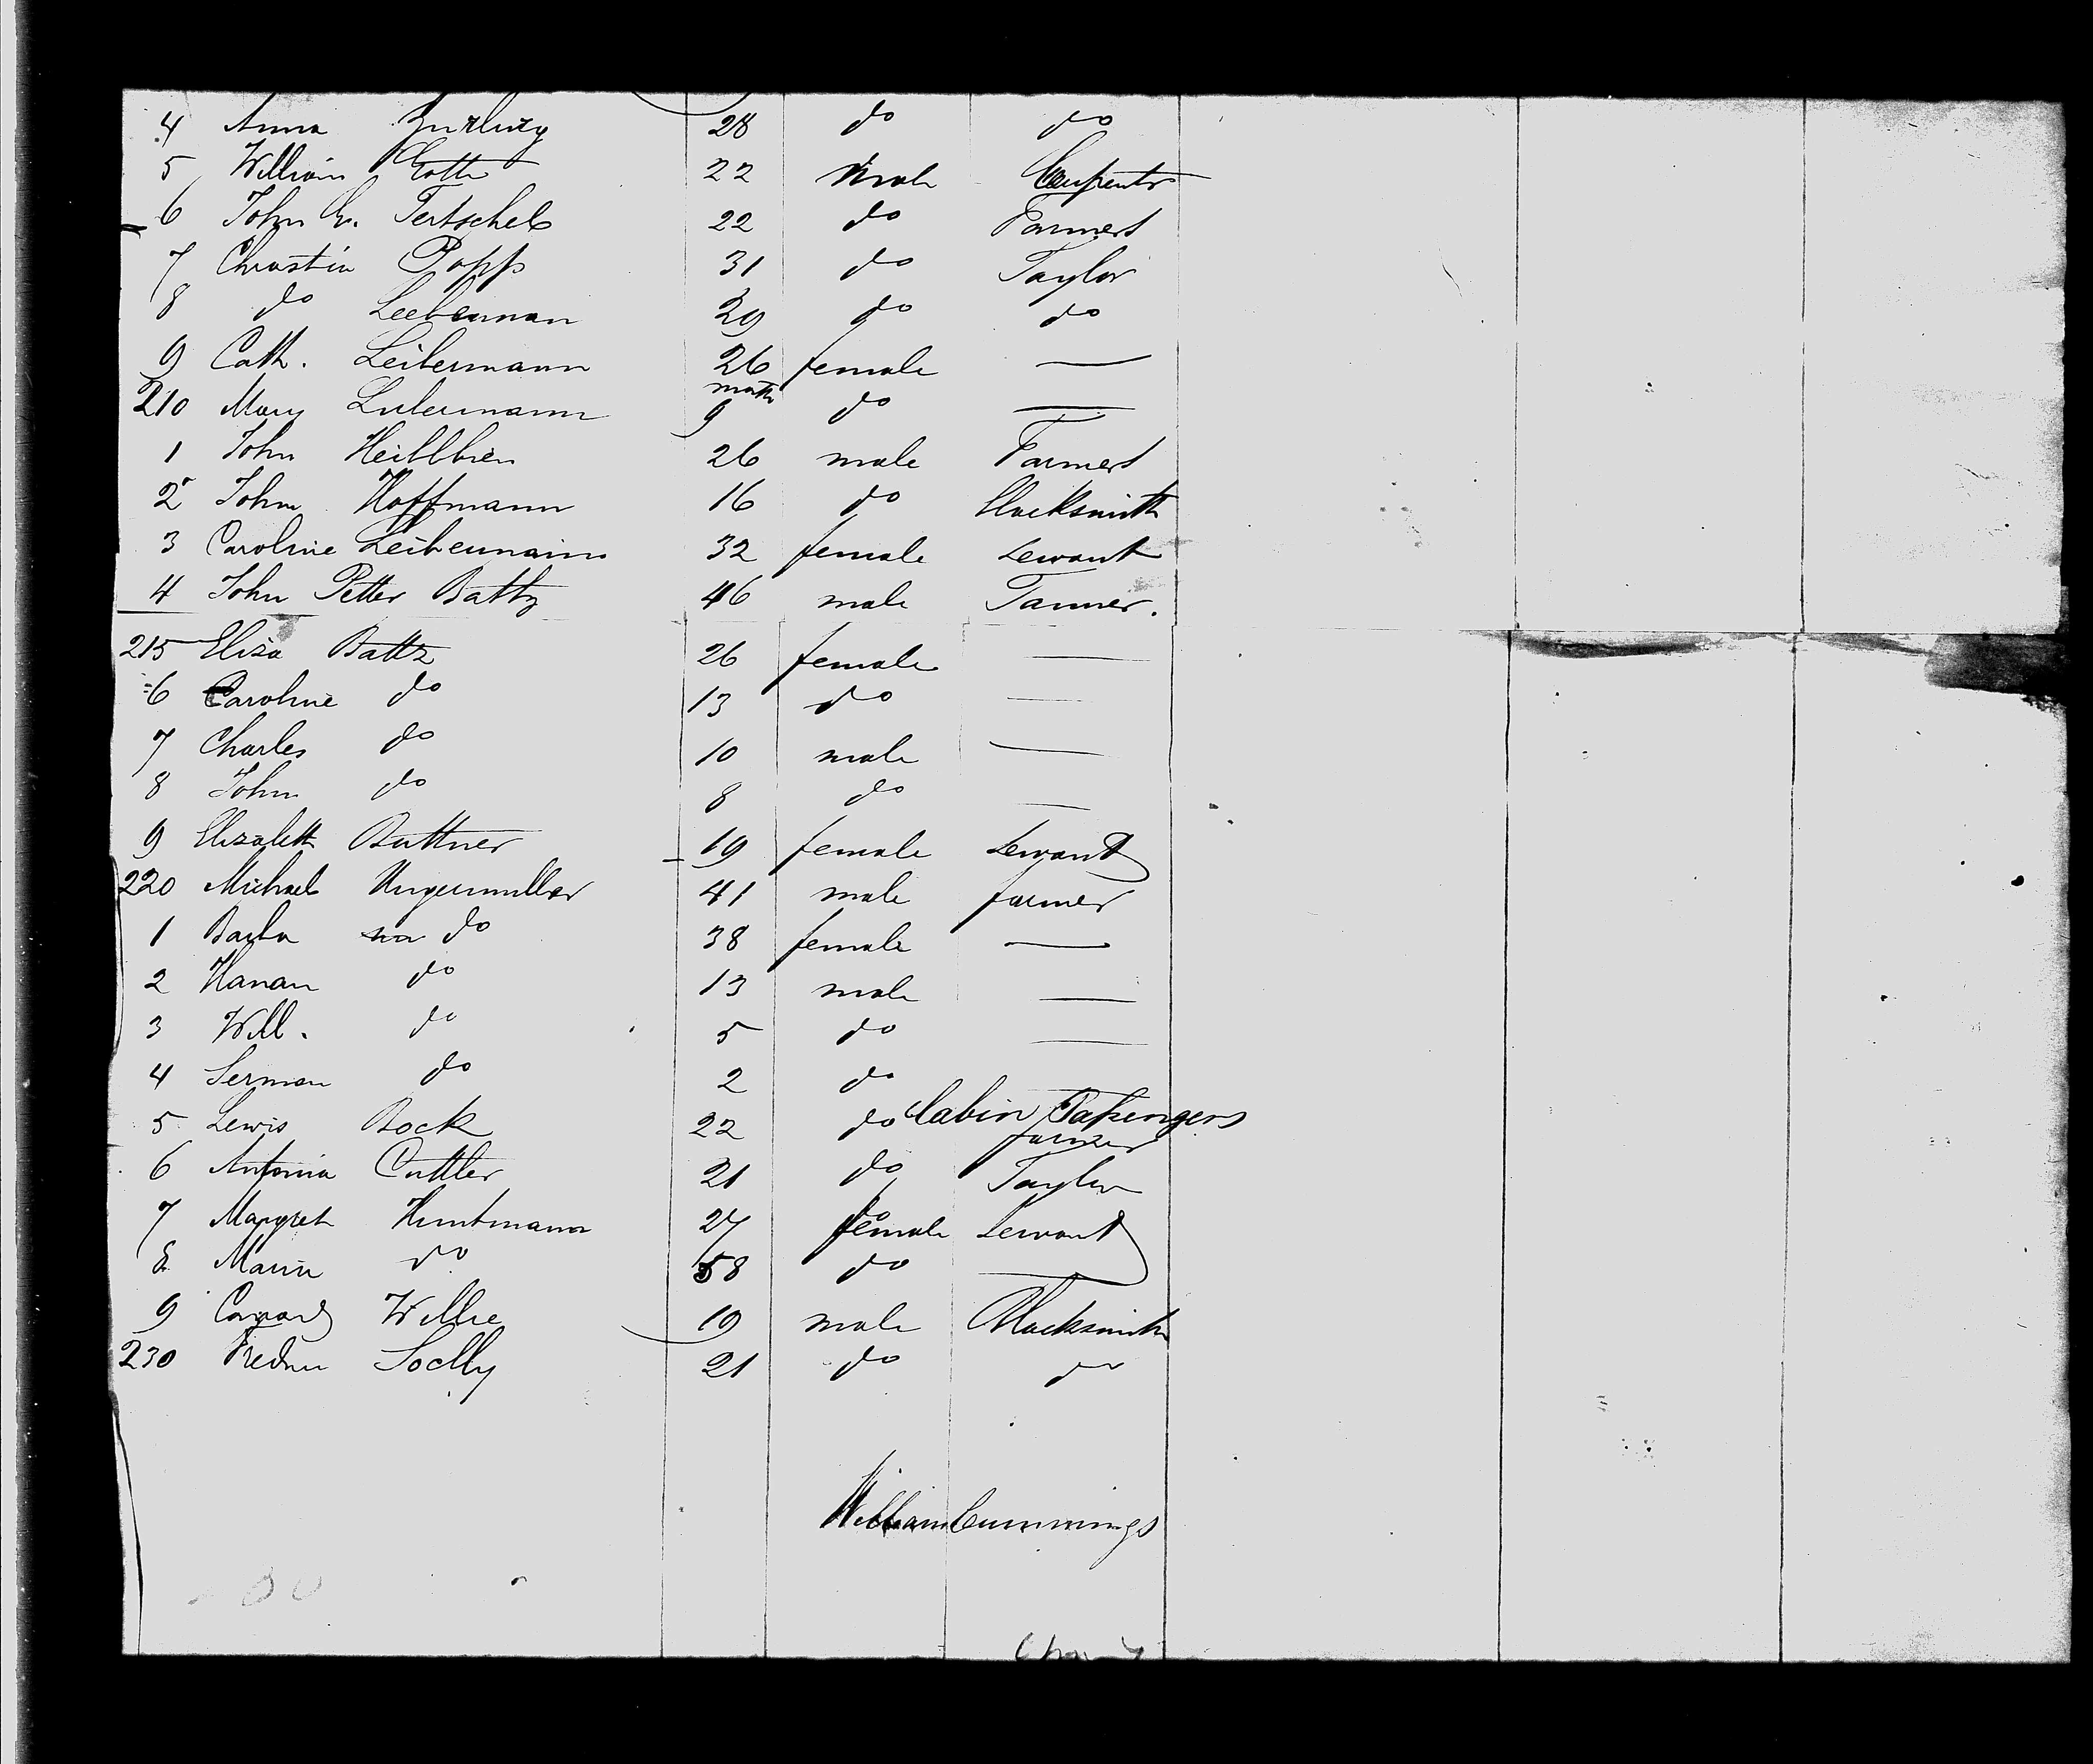 4 Anna Zurlurg 28 do do
5 William Gotte 22 Male Carpenter
6 John G. Tertschel 22 do Farmer
7 Christin Popp 31 do Taylor
8 do Leeberman 29 do do
9 Cath. Leibermann 26 female —
210 Mary Liebermann month 9 do —
1 John Heillbrien 26 male Farmer
2 John Hoffmann 16 do Blacksmith
3 Caroline Leibermann 32 female servant
4 John Petter Battz 46 male Tanner.
215 Eliza Battz 26 female —
6 Caroline do 13 do —
7 Charles do 10 male —
8 John do 8 do —
9 Elizabeth Buttner 19 female Servant
220 Michael Ungermuller 41 male farmer
1 Barba na do 38 female —
2 Hanan do 13 male —
3 Will. do 5 do —
4 Serman do 2 do —
Cabin Passengers
5 Lewis Bock 22 do farmer
6 Antonia Cuttler 21 do Taylor
7 Margret Huntmann 27 female Servant
8 Marin do 58 do —
9 Conrad Willie 19 male Blacksmith
230 Soclly 21 do do
William Cummings